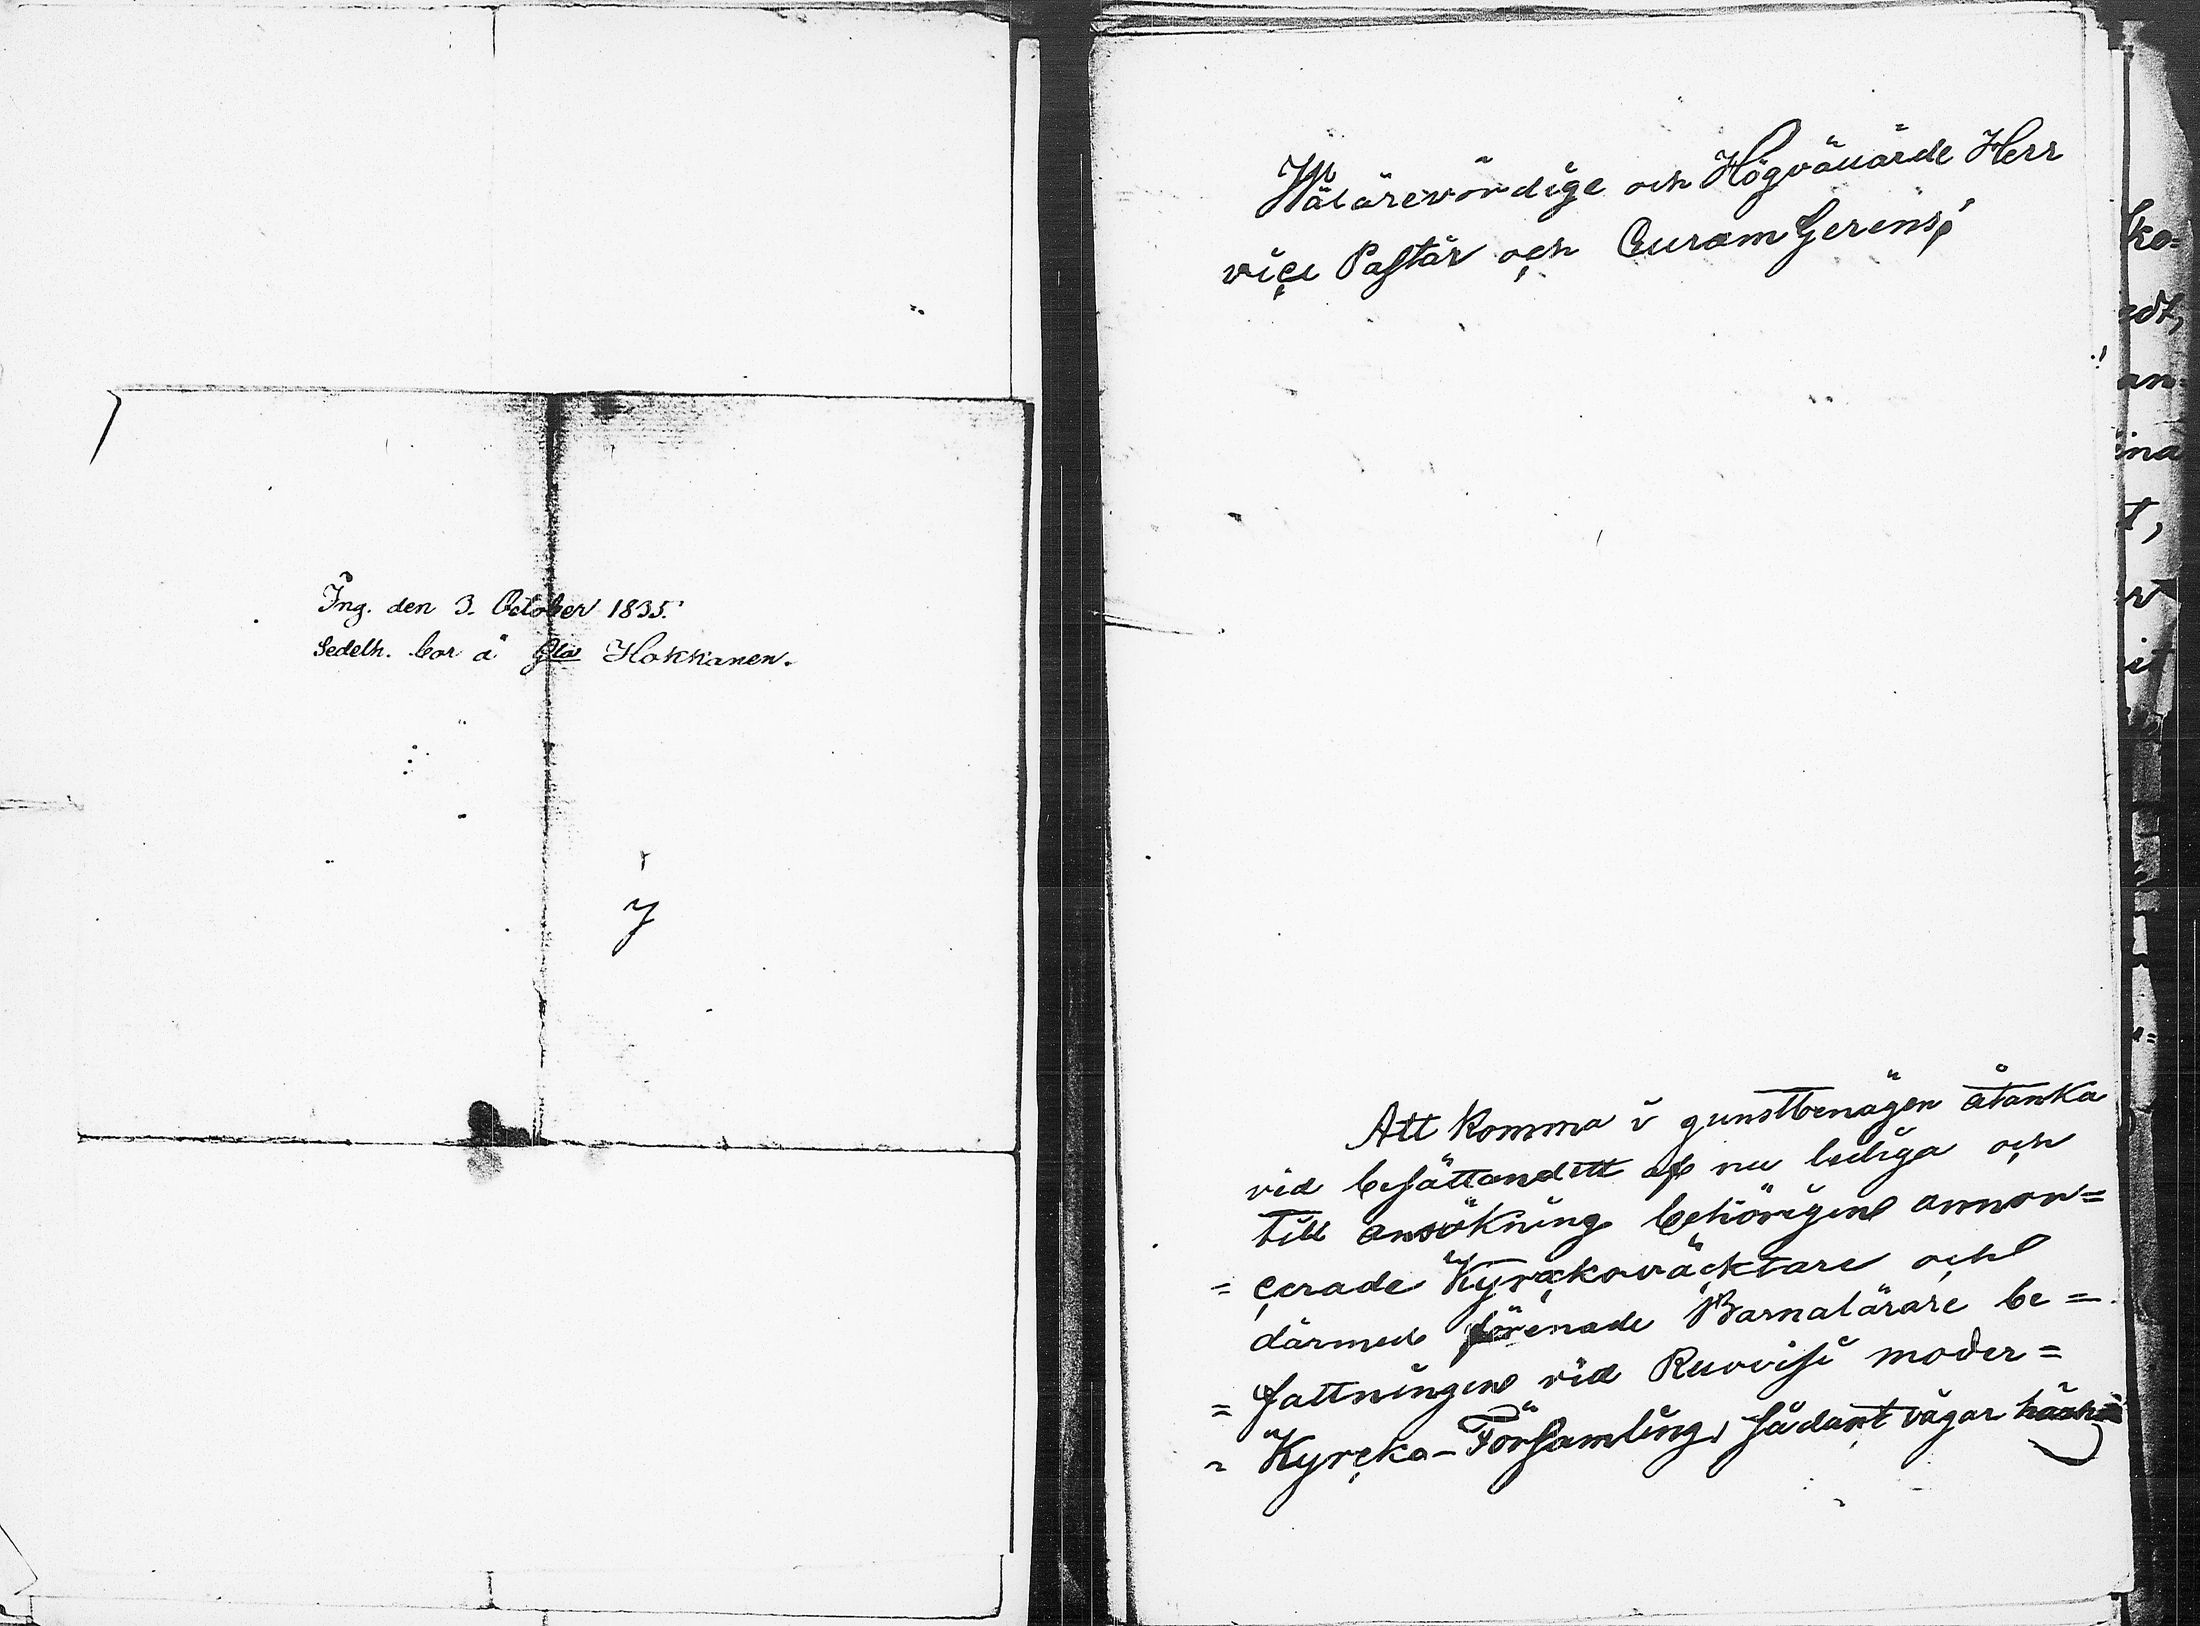 Ing. den 3. October 1835.
Sedelh. bor å Gla Hokkanen.
7
Wälärewördige och Högvälärde Herr
vice Pastor och Curam Gerens!
Att komma i gunstbenägen åtanka
vid besättandett af nu lediga och
till ansökning behörigen annon=
= cerade Kyrckoväcktare och
därmed förenade Barnalärare be=
= fattningen vid Ruovisi moder=
= Kyrcko-Församling, sådant vågar